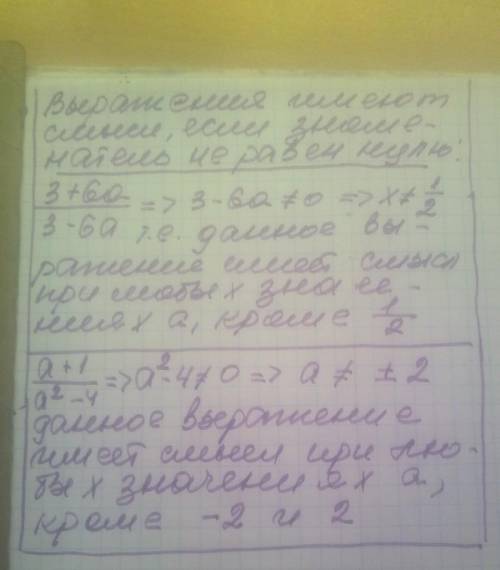 Выражения имеют
смысл, если знаме-
натель не равен нулю:
3+6a/3-6a => 3-6a≠0 => x≠1/2
т.е. данное вы-
ражение имеет смысл
при любых значе-
ниях a, кроме 1/2
a+1/a²-4 => a²-4≠0 => a ≠ ±2
данное выражение
имеет смысл при лю-
бых значениях a,
кроме -2 и 2